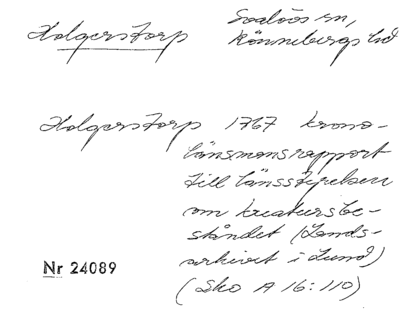 Holgerstorp
Svalövs sn,
Rönnebergs hd
Holgerstorp 1767 krono-
länsmansrapport
till länsstyrelsen
om kreatursbe-
ståndet (Lands-
arkivet i Lund)
(Sko A 16:110)
Nr 24089